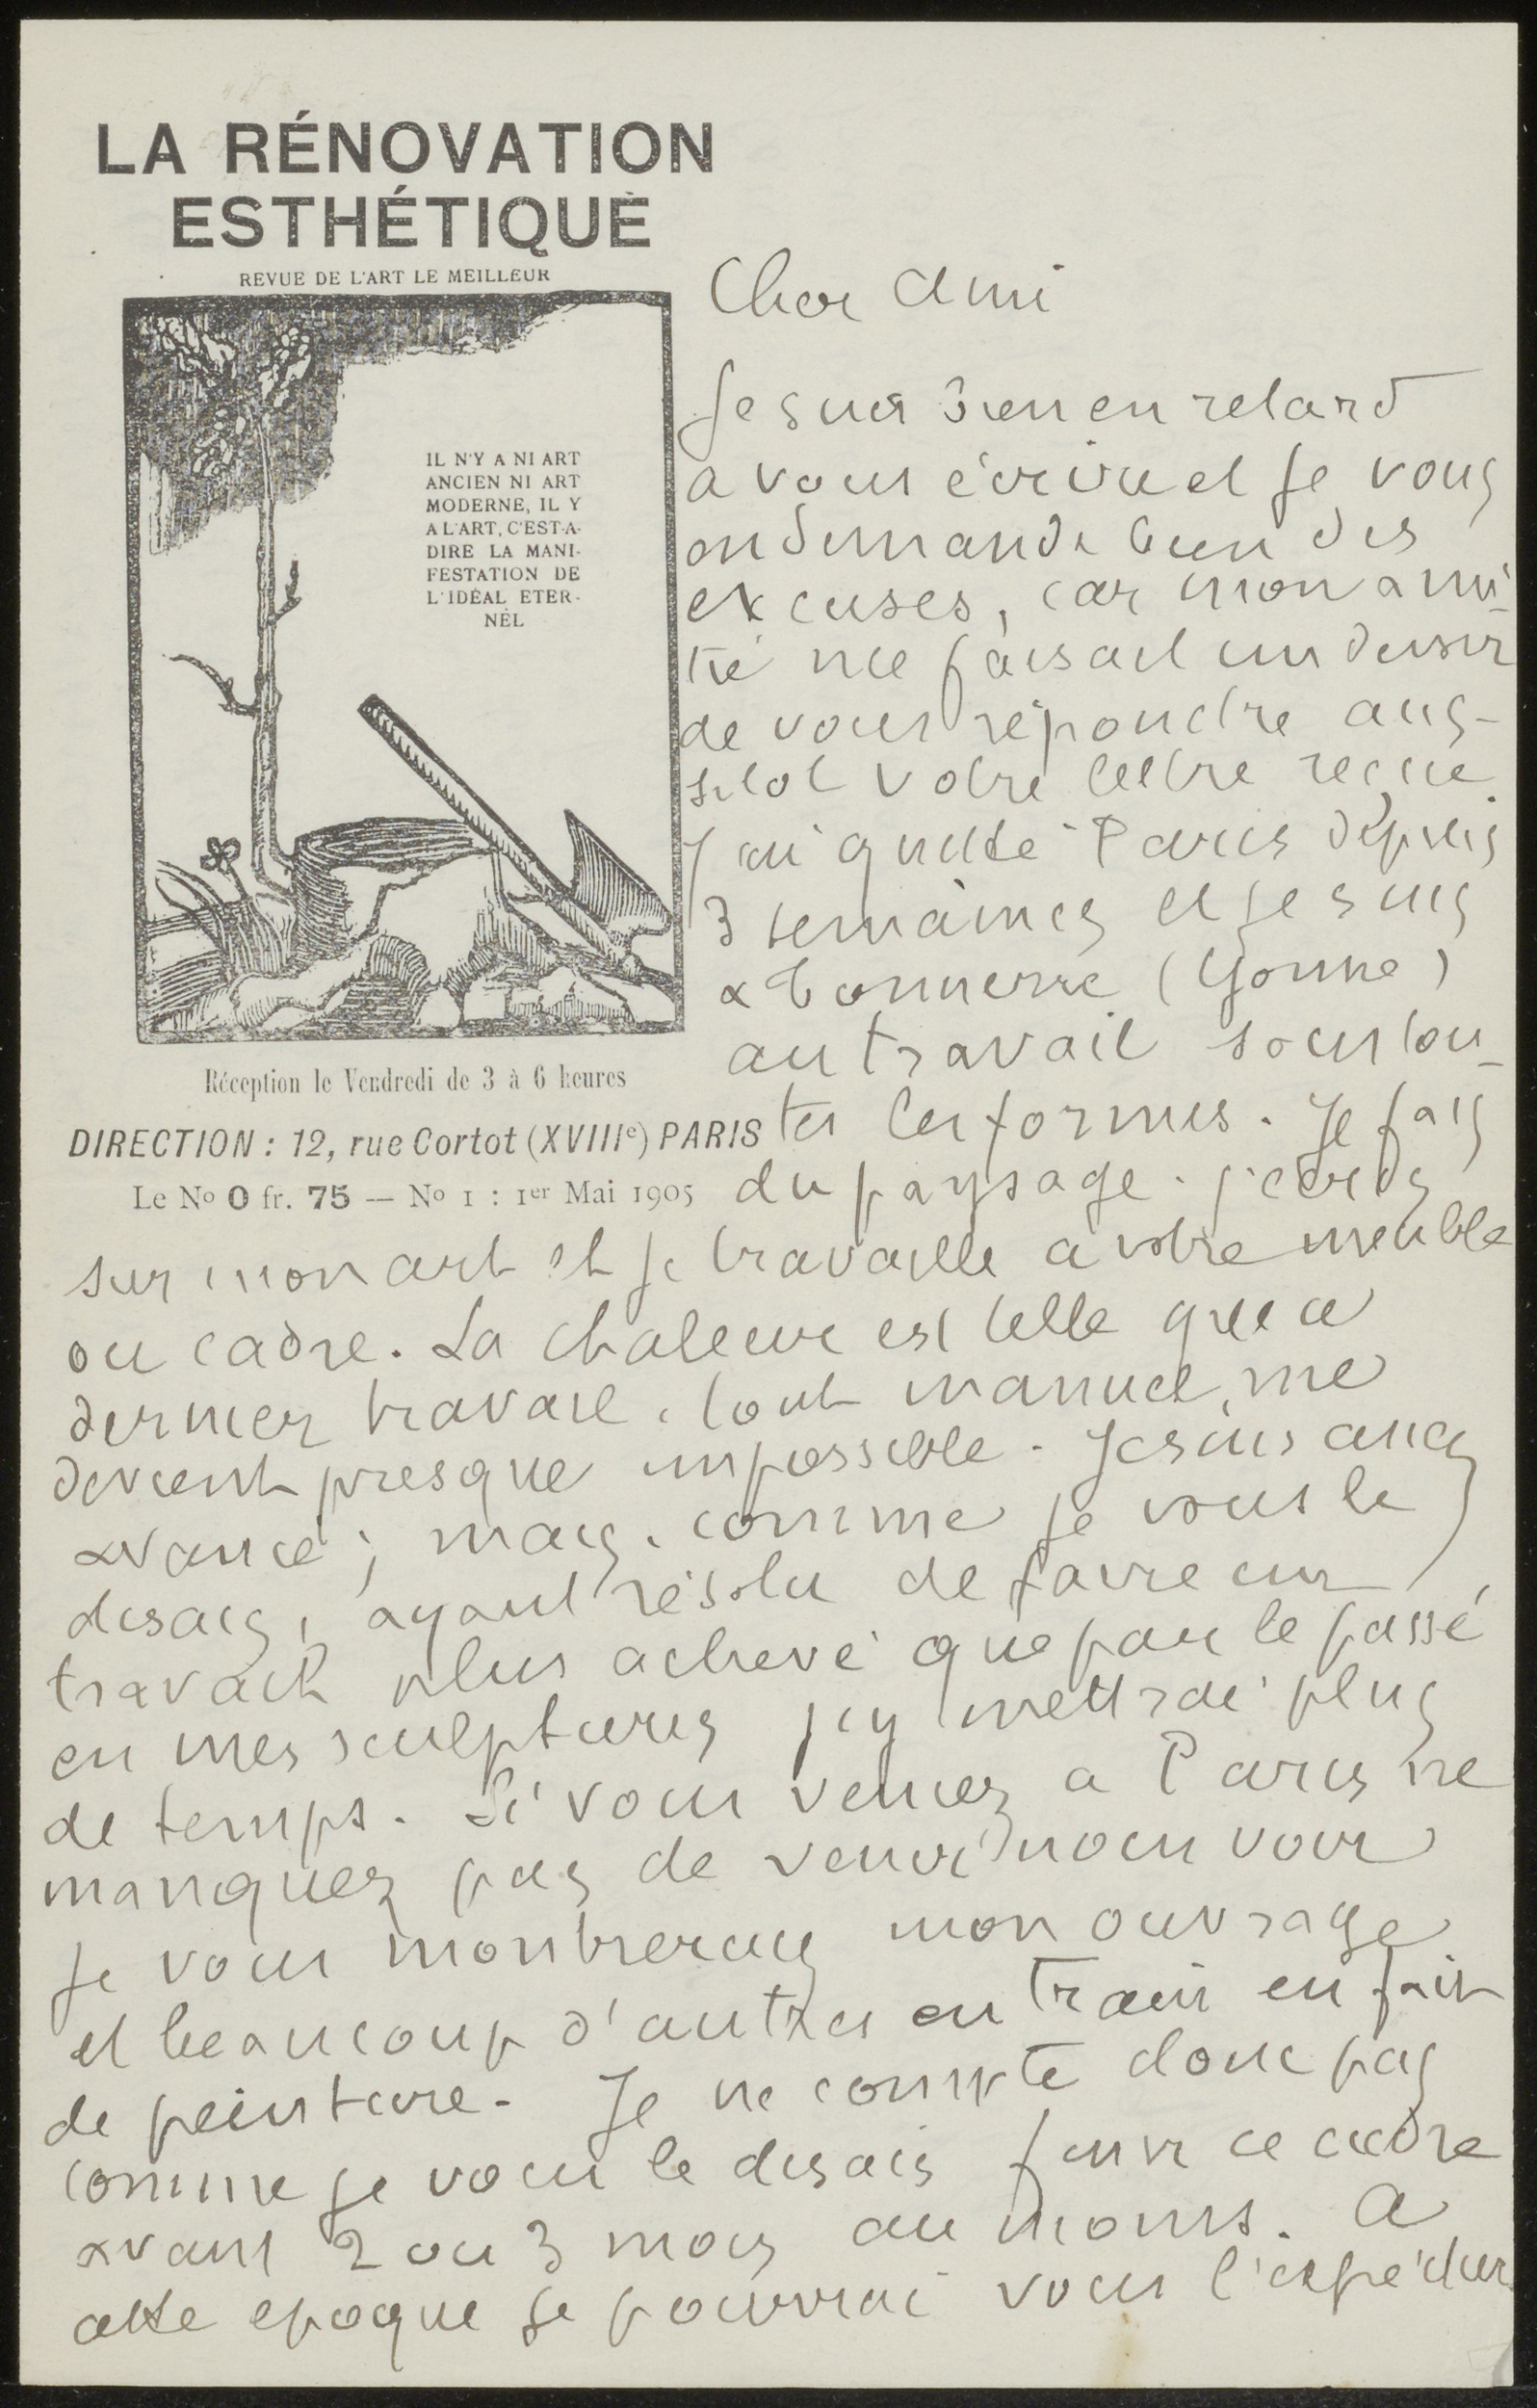 LA RÉNOVATION
ESTHÉTIQUE
REVUE DE L'ART LE MEILLEUR
IL N'Y A NI ART
ANCIEN NI ART
MODERNE, IL Y
A L'ART, C'EST-A-
DIRE LA MANI-
FESTATION DE
L'IDÉAL ETER-
NEL
Réception le Vendredi de 3 à 6 heures
DIRECTION : 12, rue Cortot (XVIIIe) PARIS
Le No 0 fr. 75 — No 1 : 1er Mai 1905
Cher Ami
Je suis bien en retard
a vous écrire et je vous
en demande bien des
excuses, car mon ami-
tié me faisait un devoir
de vous répondre aus-
sitot votre lettre reçue.
J'ai quitté Paris depuis
3 semaines et je suis
a Tonnerre (Yonne)
au travail sous tou-
tes les formes. Je fais
du paysage. j'écris
sur mon art et je travaille a votre meuble
ou cadre. La chaleur est telle que ce
dernier travail, tout manuel, me
devient presque impossible. Je suis assez
avancé ; mais, comme je vous le
disais, ayant résolu de faire un
travail plus achevé que par le passé,
en mes sculptures j'y mettrai plus
de temps. Si vous venez a Paris ne
manquez pas de venir nous voir
je vous montrerais mon ouvrage
et beaucoup d'autres en train en fait
de peinture. Je ne compte donc pas
comme je vous le disais finir ce cadre
avant 2 ou 3 mois au moins. A
cette epoque je pourrai vous l'expédier